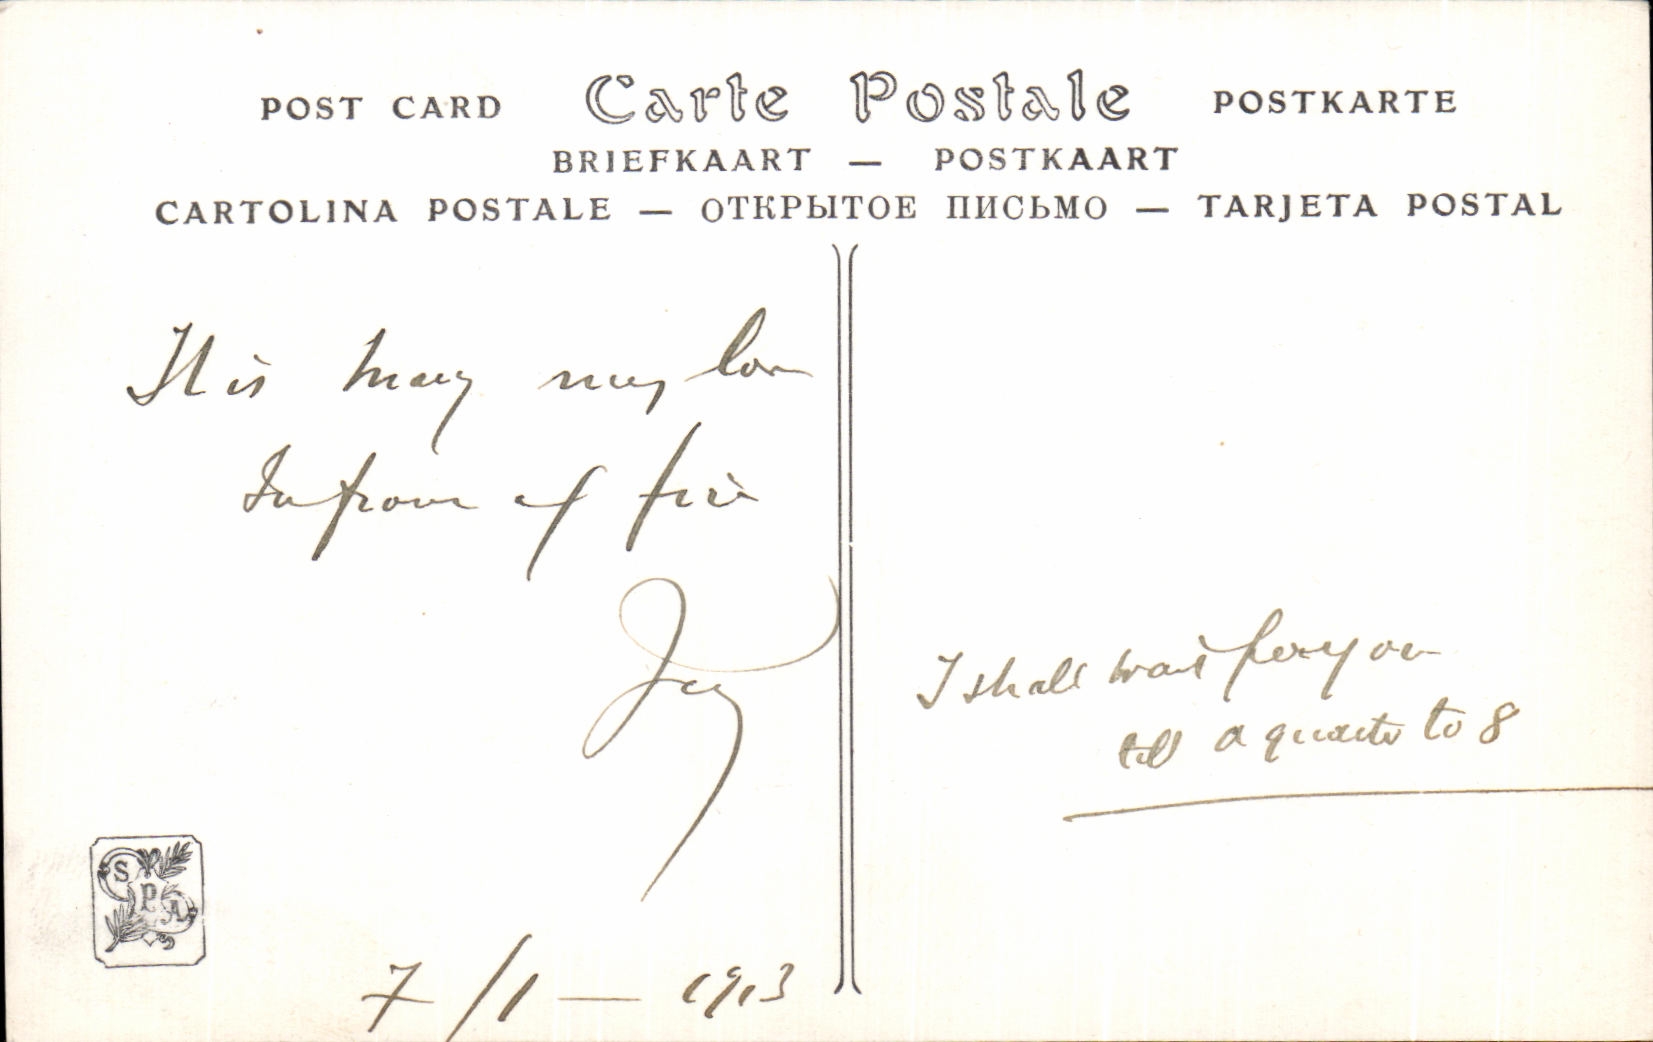 POST CARD Carte Postale POSTKARTE
BRIEFKAART — POSTKAART
CARTOLINA POSTALE — ОТКРЫТОЕ ПИСЬМО — TARJETA POSTAL
It is my
of
7/1 — 1913
I shall wait for you
till a quarter to 8
S
P
A